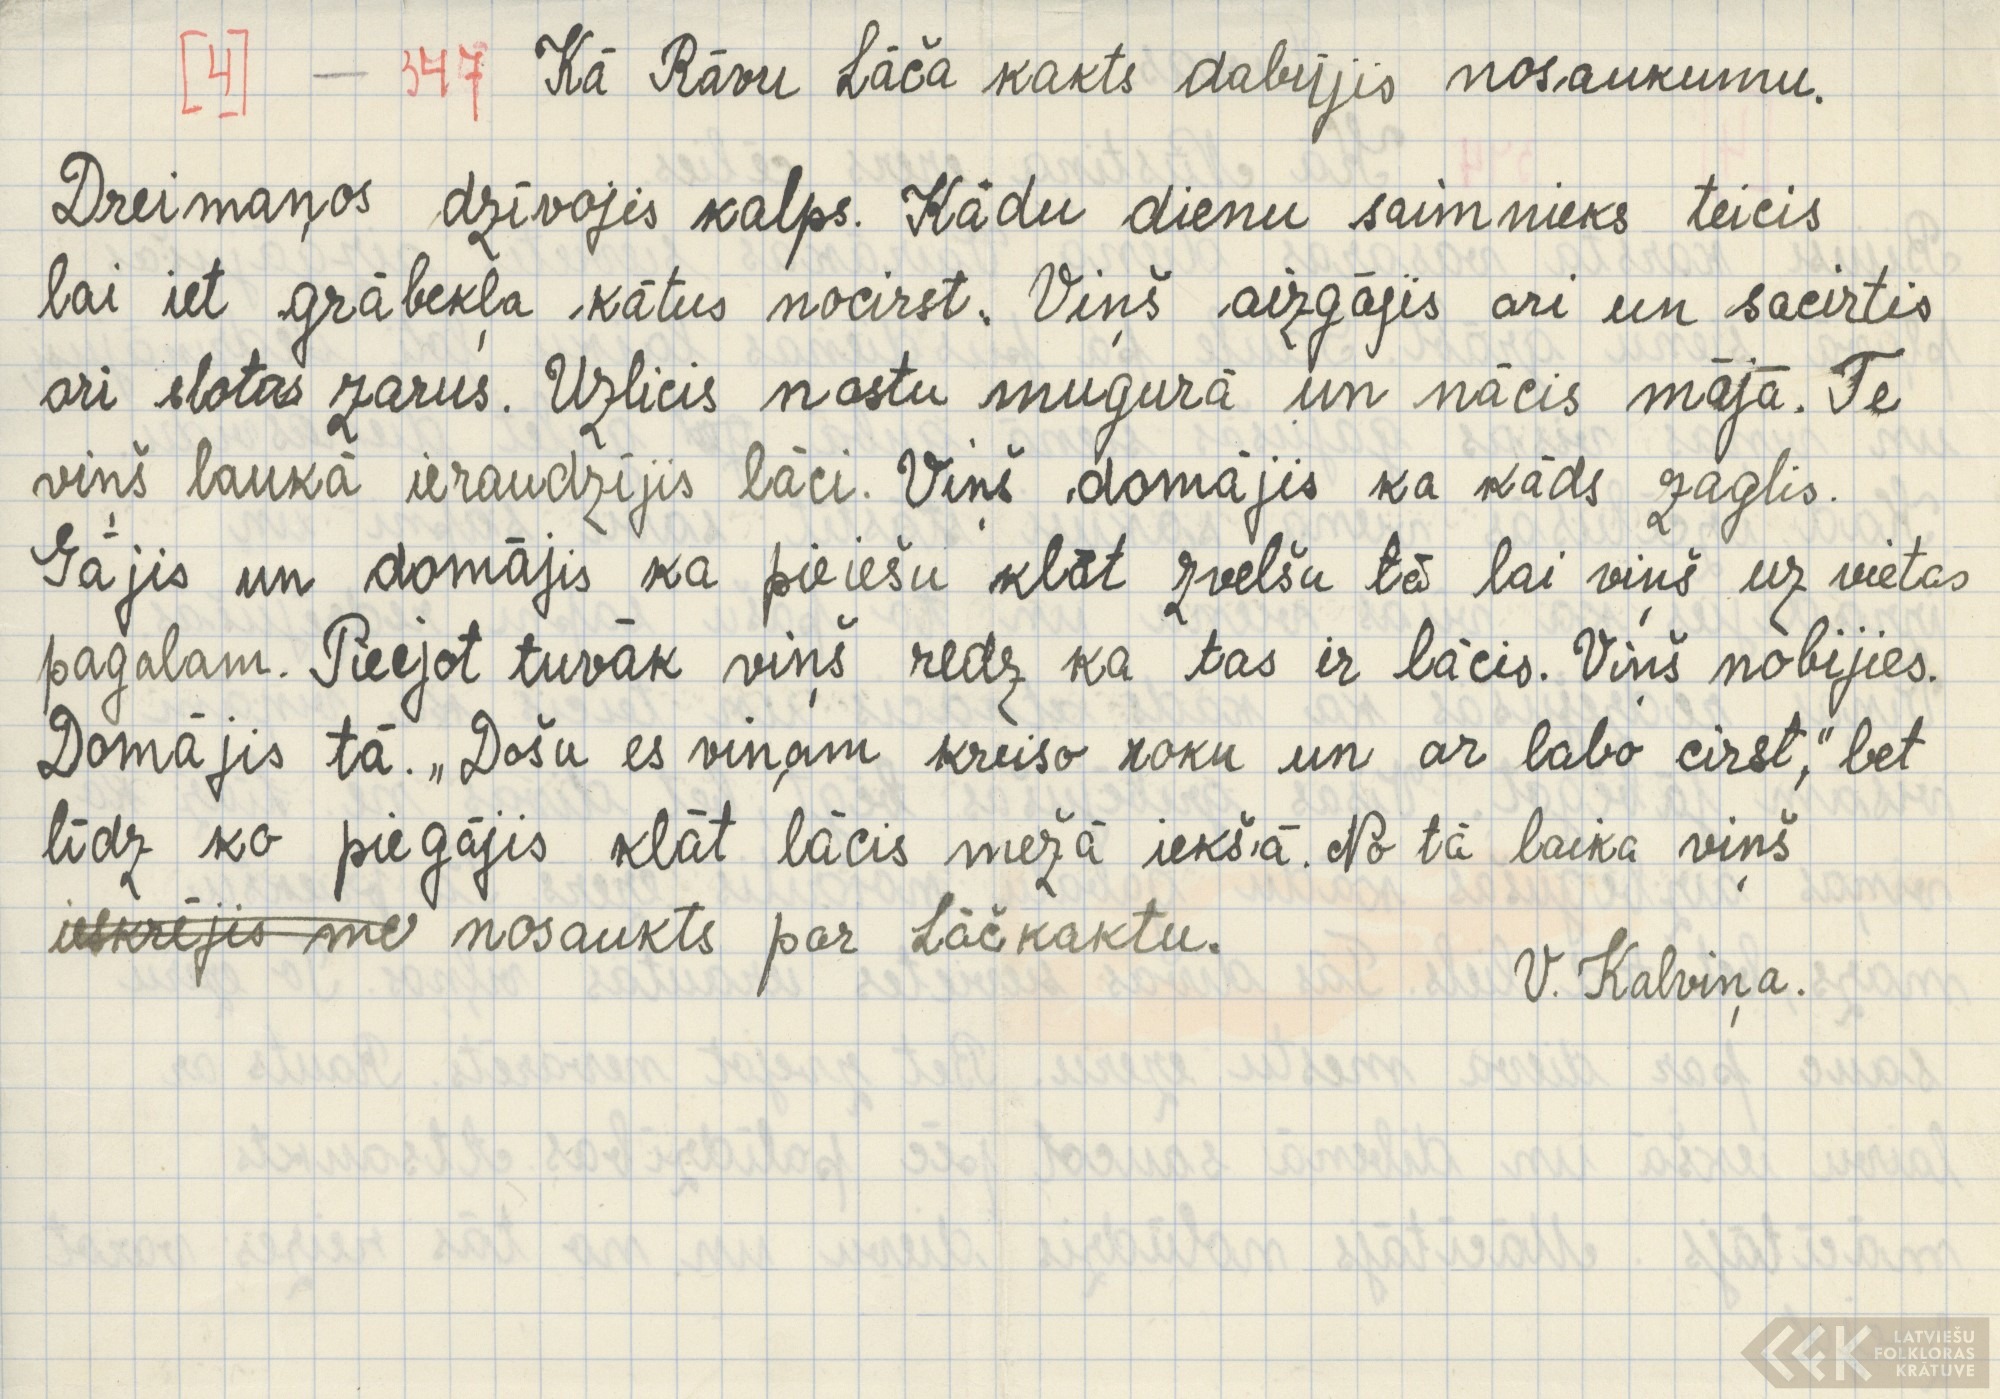 [4] — 347 Kā Rāvu Lāča kakts dabūjis nosaukumu.
Dreimaņos dzīvojis kalps. Kādu dienu saimnieks teicis
lai iet grābekļa kātus nocirst. Viņš aizgājis ari un sacirtis
ari slotas zarus. Uzlicis nastu mugurā un nācis mājā. Te
viņš laukā ieraudzījis lāci. Viņš domājis ka kāds zaglis.
Gājis un domājis ka pieiešu klāt zvelšu tā lai viņš uz vietas
pagalam. Pieejot tuvāk viņš redz ka tas ir lācis. Viņš nobijies.
Domājis tā. „Došu es viņam kreiso roku un ar labo cirst," bet
līdz ko piegājis klāt lācis mežā iekšā. No tā laika viņš
ieskrējis me nosaukts par Lāčkaktu.
V. Kalviņa.
LATVIEŠU
FOLKLORAS
KRĀTUVE